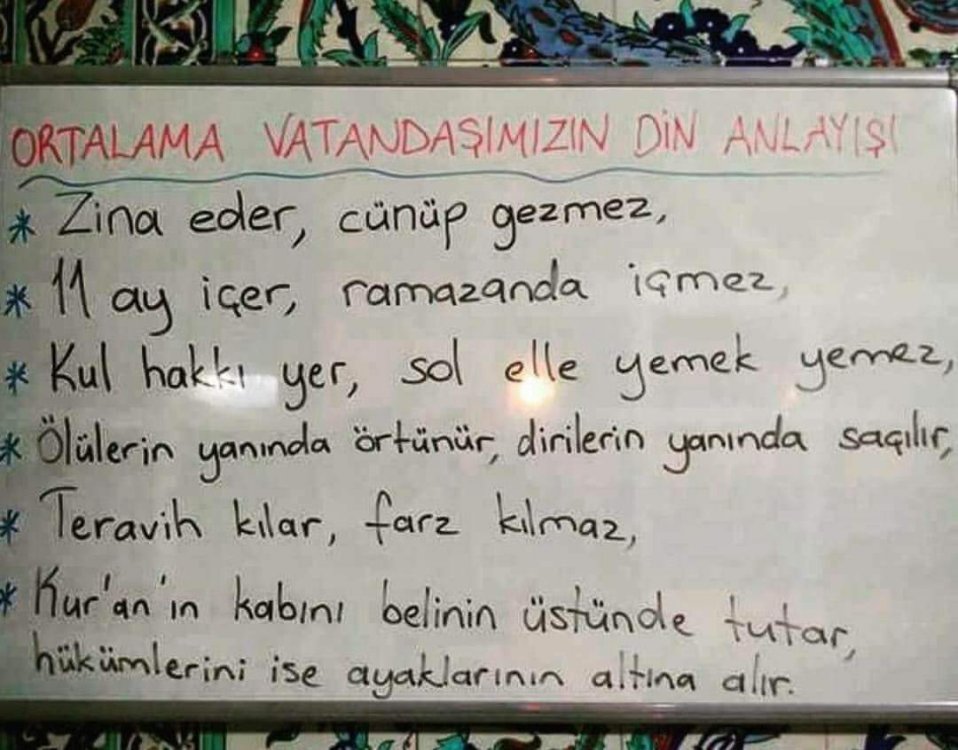 ORTALAMA VATANDAŞIMIZIN DİN ANLAYIŞI
* Zina eder, cünüp gezmez,
* 11 ay içer, ramazanda içmez,
* Kul hakkı yer, sol elle yemek yemez,
* Ölülerin yanında örtünür, dirilerin yanında saçılır,
* Teravih kılar, farz kılmaz,
* Kur'an'ın kabını belinin üstünde tutar,
hükümlerini ise ayaklarının altına alır.